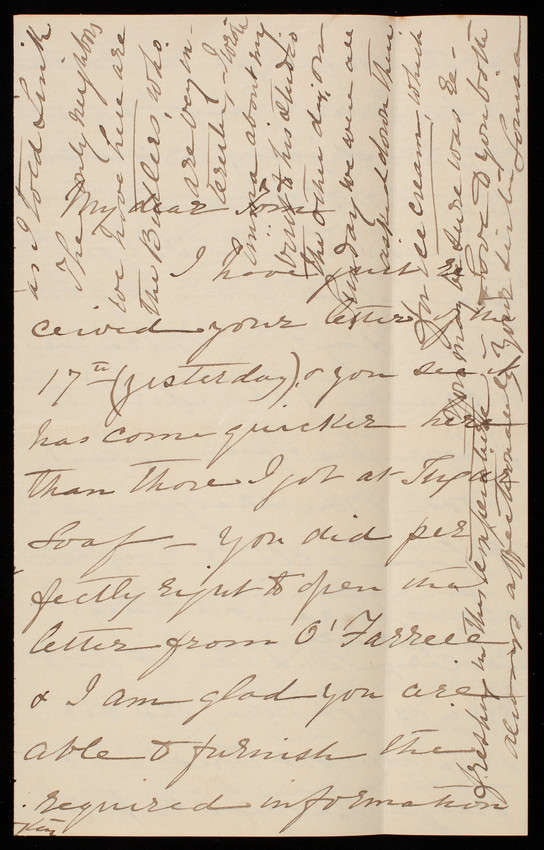 My dear Tom
I have just re
ceived your letter of the
17th (yesterday) & you see it
has come quicker here
than those I got at Sugar
Loaf – You did per
fectly right to open the
letter from O'Farrell
& I am glad you are
able to furnish the
required information
as I told Link
The only neighbors
we have here are
the Butlers, who
are very in-
teresting, I wrote
Emma about my
visit to his studio
the other day, on
Sunday we were all
asked down there
for ice cream, which
you may be sure was re-
freshing in this temperature –
Love to you both
always affectionately Your sister Louisa